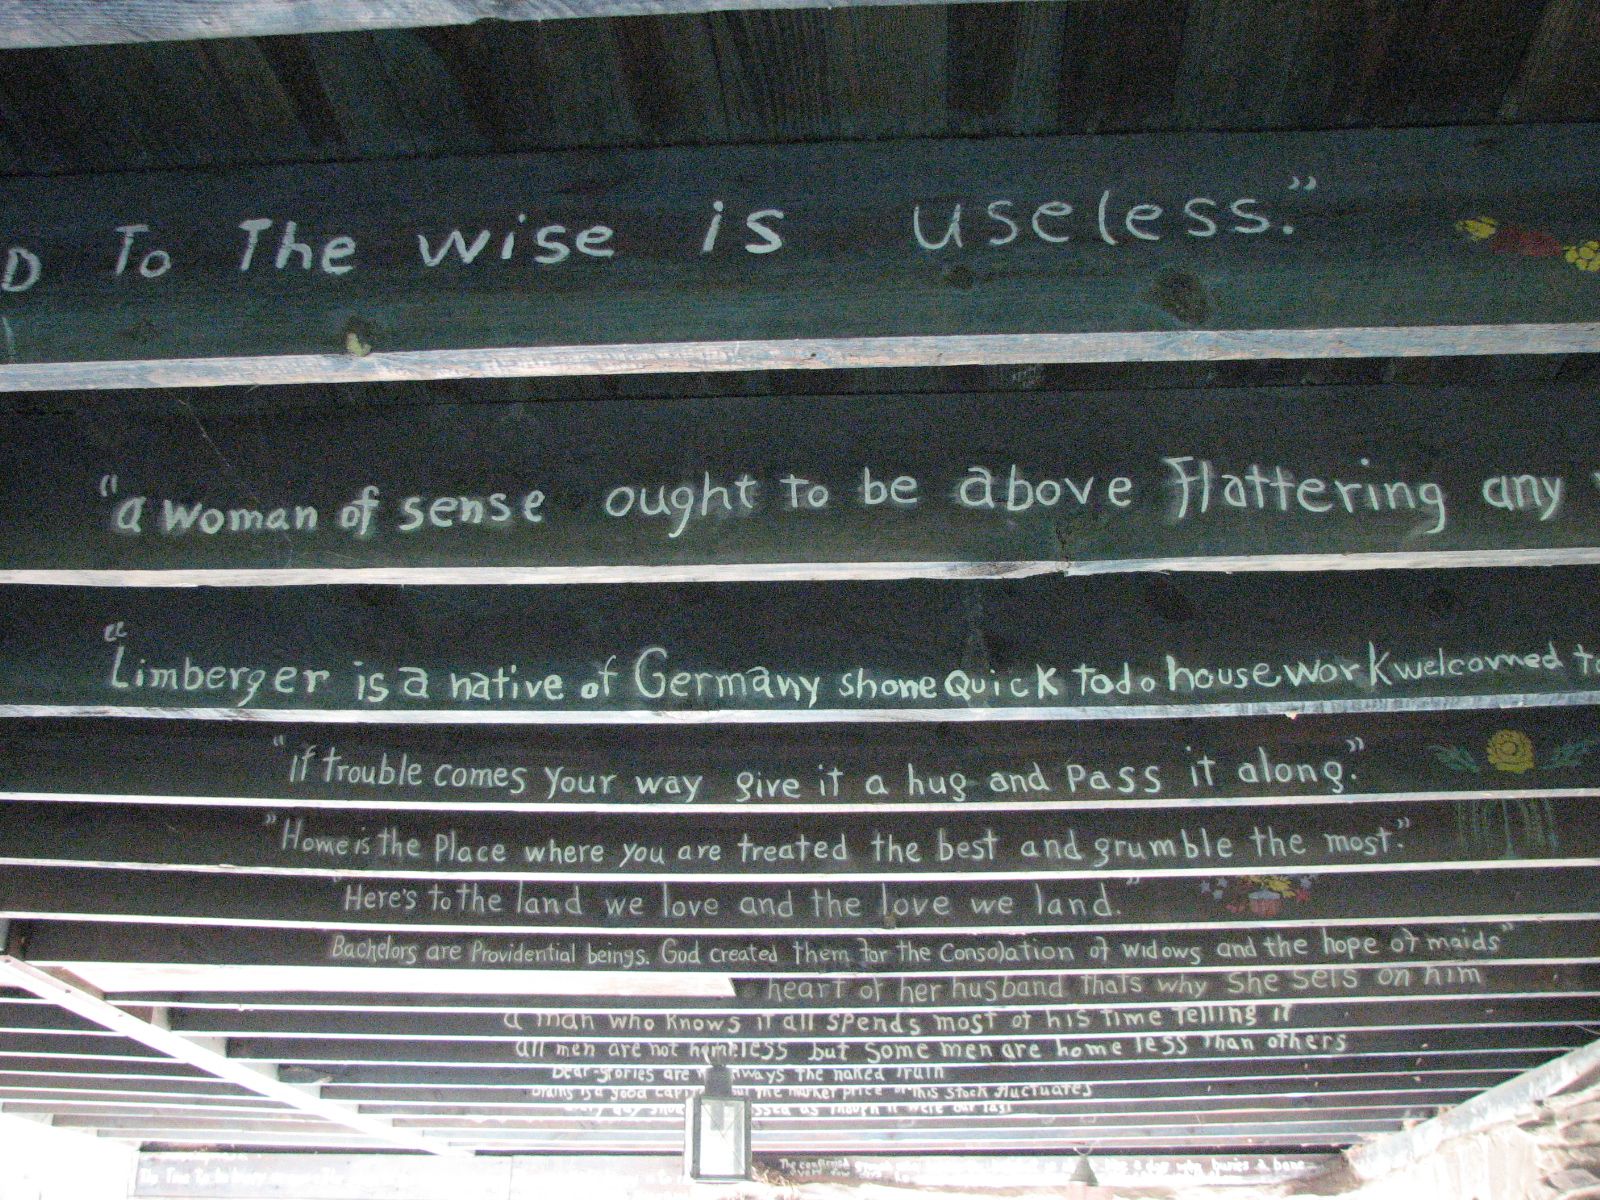 D To The wise is useless."
"a woman of sense ought to be above flattering any
"Limberger is a native of Germany shone quick to do house work welcomed to
"if trouble comes your way give it a hug and pass it along."
"Home is the Place where you are treated the best and grumble the most."
"Here's to the land we love and the love we land."
Bachelors are Providential beings. God created them for the consolation of widows and the hope of maids"
heart of her husband thats why she sets on him
a man who knows it all spends most of his time telling it
all men are not homeless but some men are home less than others
Bear-stories are the naked Truth
Brains is a good the market price of this stock fluctuates
day as though it were our last
The confirmed
who buries a bone